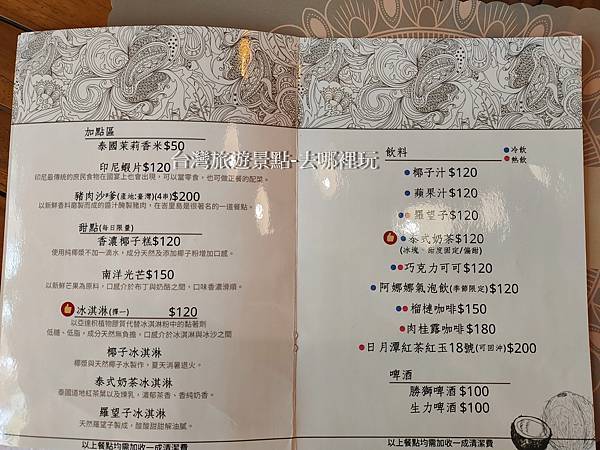 加點區
泰國茉莉香米$50
印尼蝦片$120
印尼最傳統的庶民食物在國宴上也會出現，可以當零食，也可做正餐的配菜。
豬肉沙爹(產地:臺灣)(4串)$200
以新鮮香料磨製而成的醬汁醃製豬肉，在峇里島是很著名的一道餐點。
甜點(每日限量)
香濃椰子糕$120
使用純椰漿不加一滴水，成分天然及添加椰子粉增加口感。
南洋光芒$150
以新鮮芒果為原料，口感介於布丁與奶酪之間，口味香濃滑順。
冰淇淋(擇一) $120
以亞達枳植物膠質代替冰淇淋粉中的黏著劑
低糖、低脂，成分天然無負擔，口感介於冰淇淋與冰沙之間
椰子冰淇淋
椰漿與天然椰子水製作，夏天消暑退火。
泰式奶茶冰淇淋
泰國道地紅茶葉以及煉乳，濃郁茶香、香純奶香。
羅望子冰淇淋
天然羅望子製成，酸酸甜甜解油膩。
以上餐點均需加收一成清潔費
台灣旅遊景點-去哪裡玩
飲料
冷飲
熱飲
椰子汁$120
蘋果汁$120
羅望子$120
泰式奶茶$120
(冰塊、甜度固定/偏甜)
巧克力可可$120
阿娜娜氣泡飲(季節限定)$120
榴槤咖啡$150
肉桂露咖啡$180
日月潭紅茶紅玉18號(可回沖)$200
啤酒
勝獅啤酒$100
生力啤酒$100
以上餐點均需加收一成清潔費